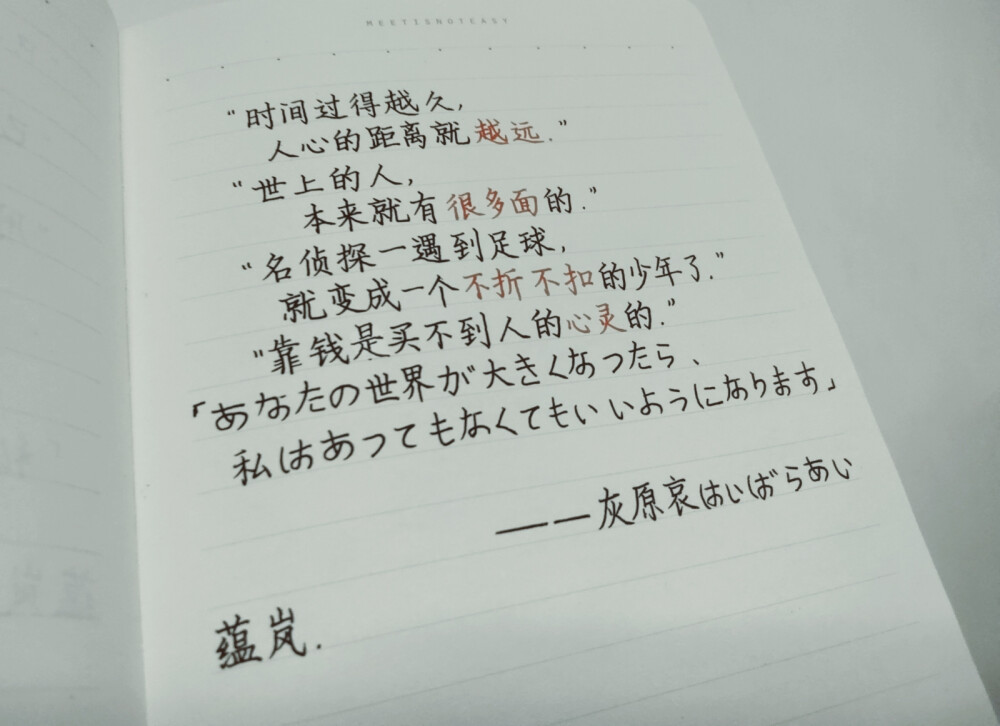 MEETISNOTEASY
“时间过得越久,
人心的距离就越远.”
“世上的人,
本来就有很多面的.”
“名侦探一遇到足球,
就变成一个不折不扣的少年了.”
“靠钱是买不到人的心灵的.”
「あなたの世界が大きくなったら、
私はあってもなくてもいいようになります」
——灰原哀はいばらあい
蕴岚.